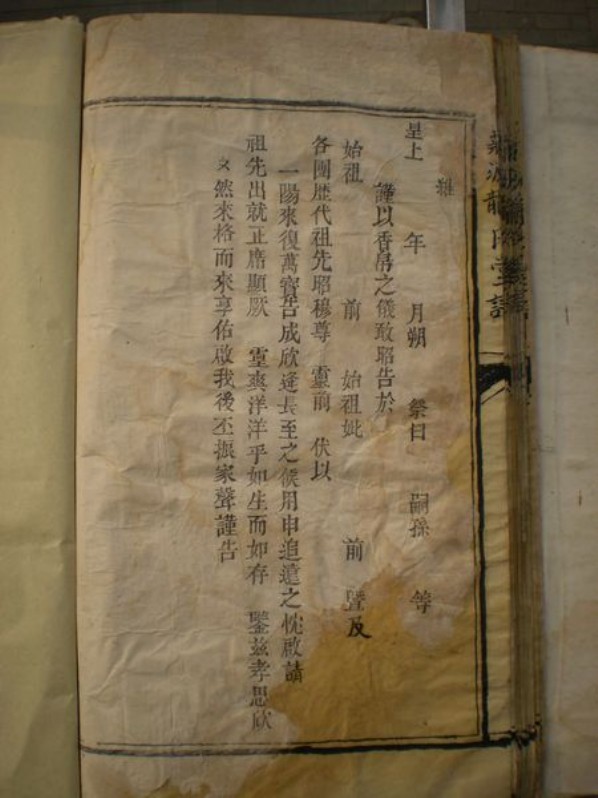 維
皇上 年 月朔 祭日 嗣孫 等
謹以香帛之儀敢昭告於
始祖 前 始祖妣 前 暨及
各團歷代祖先昭穆尊 靈前 伏以
一陽來復萬寳告成欣逢長至之候用申追遠之忱啟請
祖先出就正席顯厥 靈爽洋洋乎如生而如存 鑒茲孝思欣
然來格而來享佑啟我後丕振家聲謹告